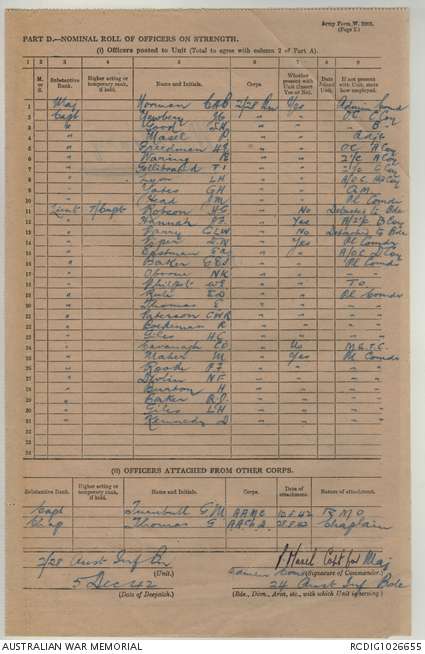 Army Form W. 3008.
(Page 2.)
PART D.—NOMINAL ROLL OF OFFICERS ON STRENGTH.
(i) Officers posted to Unit (Total to agree with column 2 of Part A).
1 2 3 4 5 6 7 8 9
M. or S. Substantive Rank. Higher acting or temporary rank, if held. Name and Initials. Corps. Whether present with Unit (Insert Yes or No). Date joined Unit. If not present with Unit, state how employed.
1 Maj Norman CAB 2/28 Bn Yes Admin Comd
2 Capt Newbery JC " " OC C Coy
3 " Wood " " " B "
4 " Masel P " " Adjt
5 " Freedman " " OC A Coy
6 " Waring " " 2/c A Coy
7 " Gollibrand T I " " 2/c C Coy
8 " Lyon LH " " A/OC HQ Coy
9 " Oates GH " " Q.M.
10 " Head " " Pl Comdr
11 Lieut T/Capt Robson HG " No Detached to Bde
12 " " Hannah " Yes A/2/c B Coy
13 " Parry CLW " No Detached to Bde
14 " " Yes Pl Comdr
15 " Eastman " " A/OC D Coy
16 " Baker " " Pl Comdr
17 " NK " " "
18 " Philpott WE " " T.O.
19 " Rule ED " " Pl Comdr
20 " Thomas E " " "
21 " Paterson CWR " " "
22 " R " " "
23 " Giles HC " " "
24 " Cavanagh CD " No M.G.T.C.
25 " Maher M " Yes Pl Comdr
26 " Rooke " " "
27 " Devlin NF " " "
28 " Burton H " " "
29 " Baker R.J. " " "
30 " Giles LH " " "
31 " Kennedy D " " "
32
33
34
(ii) OFFICERS ATTACHED FROM OTHER CORPS.
Substantive Rank. Higher acting or temporary rank, if held. Name and Initials. Corps. Date of attachment. Nature of attachment.
Capt Turnbull G M AAMC 42 RMO
Chap Thomas G 42 Chaplain
2/28 Aust Inf Bn
(Unit.)
P Masel Capt for Maj
Comd
(Signature of Commander.)
5 Dec 42
(Date of Despatch.)
24 Aust Inf Bde
(Bde., Divn., Area, etc., with which Unit is serving.)
AUSTRALIAN WAR MEMORIAL
RCDIG1026655